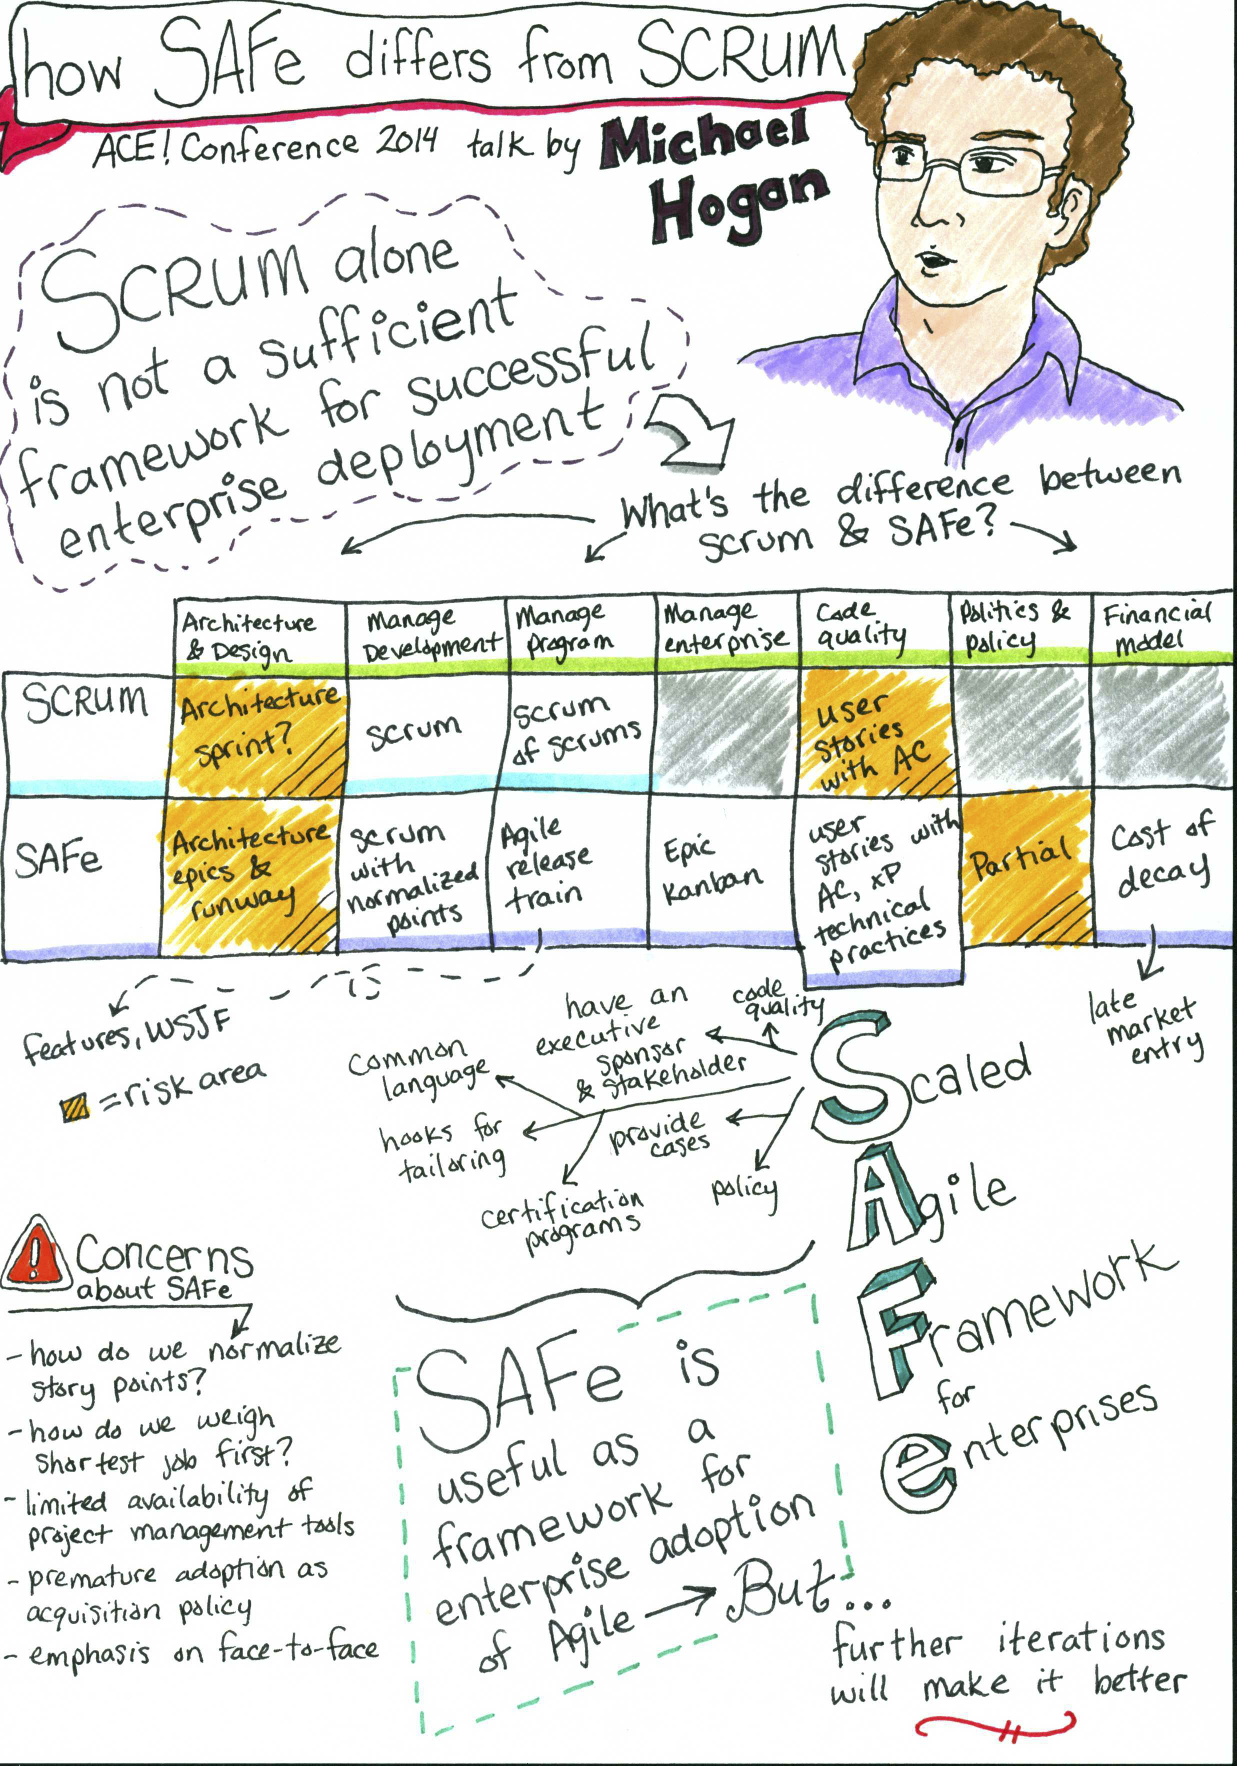 how SAFe differs from SCRUM
ACE! Conference 2014 talk by Michael
Hogan
SCRUM alone
is not a sufficient
framework for successful
enterprise deployment
What's the difference between
scrum & SAFe?
Architecture
& Design
Manage
Development
Manage
program
Manage
enterprise
Code
quality
Politics &
policy
Financial
model
SCRUM
Architecture
sprint?
scrum
scrum
of scrums
user
stories
with AC
SAFe
Architecture
epics &
runway
scrum
with
normalized
points
Agile
release
train
Epic
Kanban
user
stories with
AC, XP
technical
practices
Partial
Cost of
decay
features, WSJF
= risk area
late
market
entry
code
quality
have an
executive
sponsor
& stakeholder
common
language
hooks for
tailoring
provide
cases
certification
programs
policy
Scaled
Agile
Framework
for
enterprises
! Concerns
about SAFe
- how do we normalize
story points?
- how do we weigh
shortest job first?
- limited availability of
project management tools
- premature adoption as
acquisition policy
- emphasis on face-to-face
SAFe is
useful as a
framework for
enterprise adoption
of Agile → But...
further iterations
will make it better